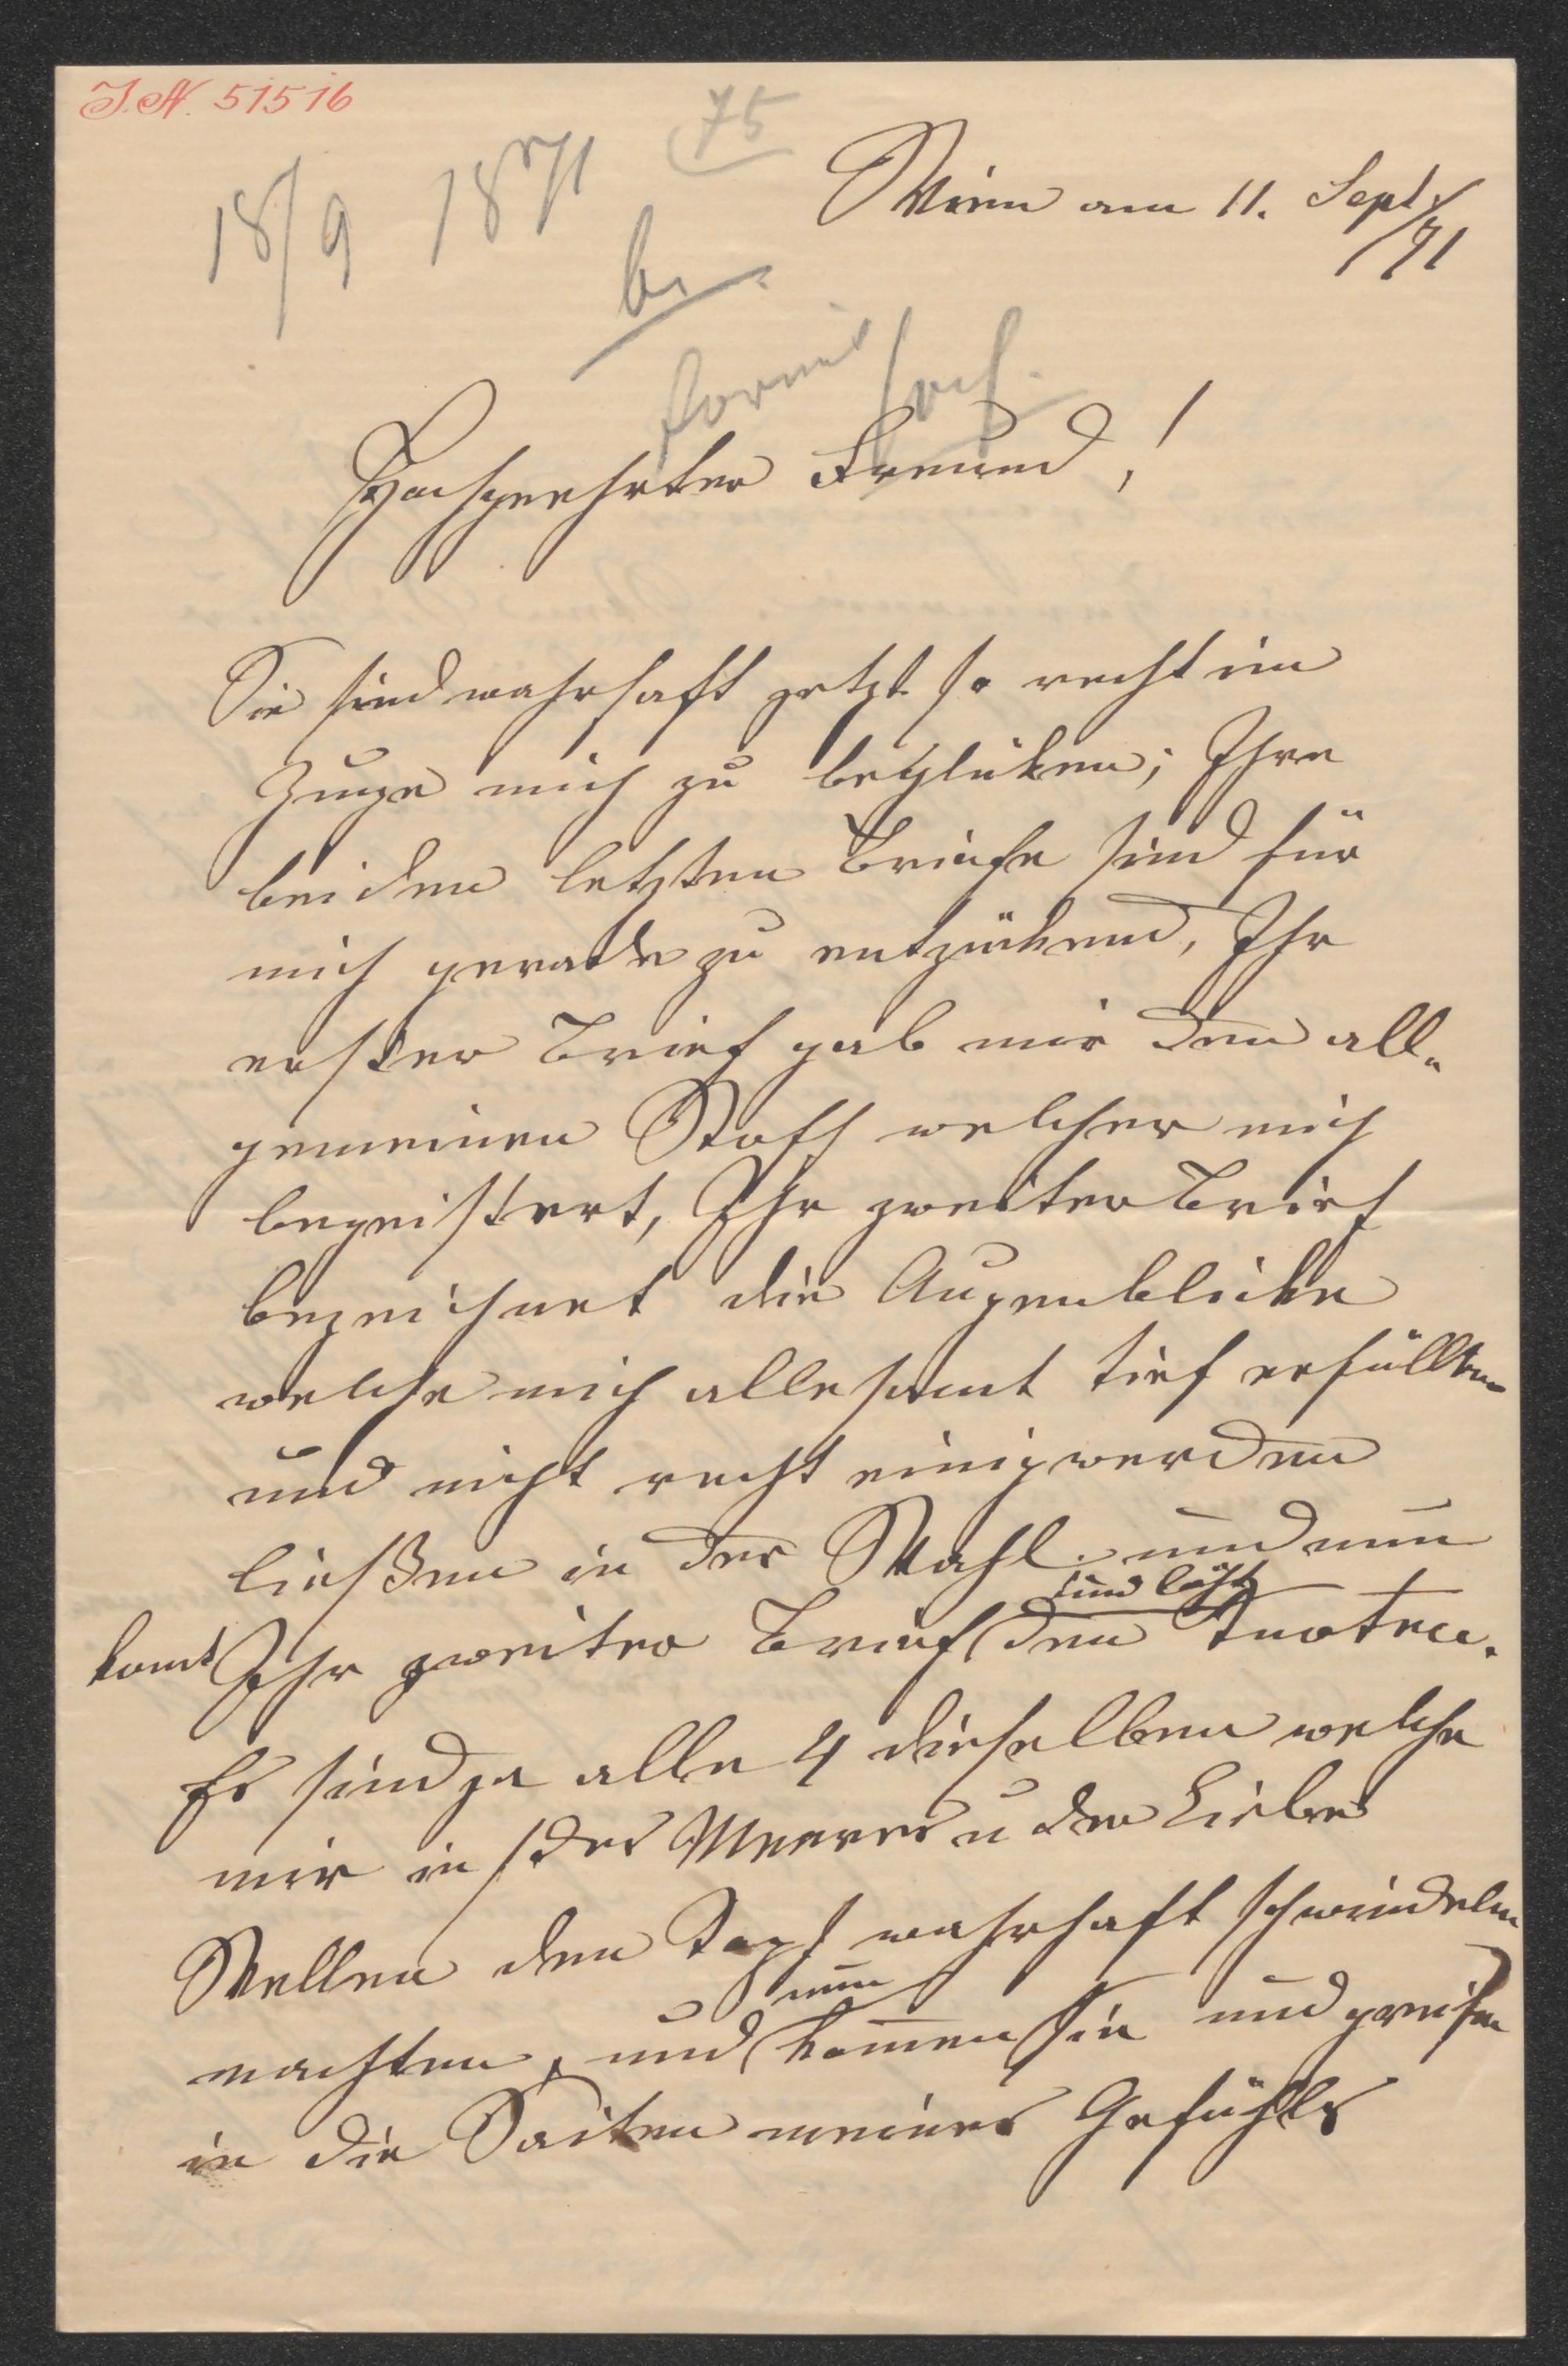 I.N. 51516
75
18/9 1871
Wien am 11. Sept.
/71
b.
Hochgeehrter Freund!
Sie sind wahrhaft jetzt so recht im
Zuge mich zu beglüken; Ihre
beiden letzten Briefe sind für
mich geradezu entzükend, Ihr
erster Brief gab mir den all-
gemeinen Stoff welcher mich
begeistert, Ihr zweiter Brief
bezeichnet die Augenblicke
welche mich allesamt tief erfüllten
und nicht recht einig werden
ließen in der Wahl. und nun
und löst
komt Ihr zweiter Brief den Knoten.
Es sind ja alle 4 dieselben welche
mir in des Meeres u der Liebe
Wellen den Kopf wahrhaft schwindeln
nun
machten, und komen Sie und greifen
in die Saiten meines Gefühls